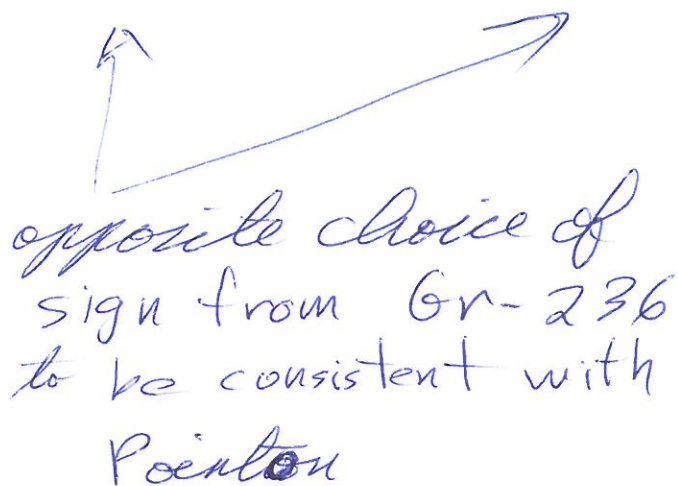 opposite choice of
sign from Gr-236
to be consistent with
Pointon